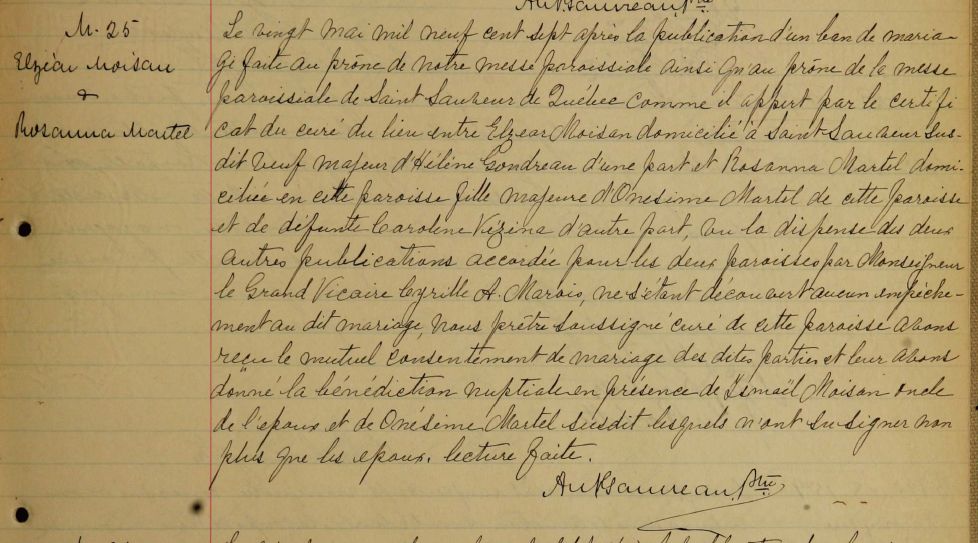 M. 25
Elzéar Moisan
&
Rosanna Martel
Le vingt mai mil neuf cent sept après la publication d'un ban de maria-
ge faite au prône de notre messe paroissiale ainsi qu'au prône de la messe
paroissiale de Saint Sauveur de Québec comme il appert par le certifi
cat du curé du lieu entre Elzear Moisan domicilié à Saint Sauveur sus-
dit veuf majeur d'Hélène Gondreau d'une part et Rosanna Martel domi-
ciliée en cette paroisse fille majeure d'Onesime Martel de cette paroisse
et de défunte Caroline Vézina d'autre part, vu la dispense des deux
autres publications accordée pour les deux paroisses par Monseigneur
le Grand Vicaire Cyrille A. Marois, ne s'étant découvert aucun empêche-
ment au dit mariage, nous prêtre soussigné curé de cette paroisse avons
reçu le mutuel consentement de mariage des dites parties et leur avons
donné la bénédiction nuptiale en présence de Ismaël Moisan oncle
de l'epoux et de Onésime Martel susdit lesquels n'ont su signer non
plus que les epoux. lecture faite.